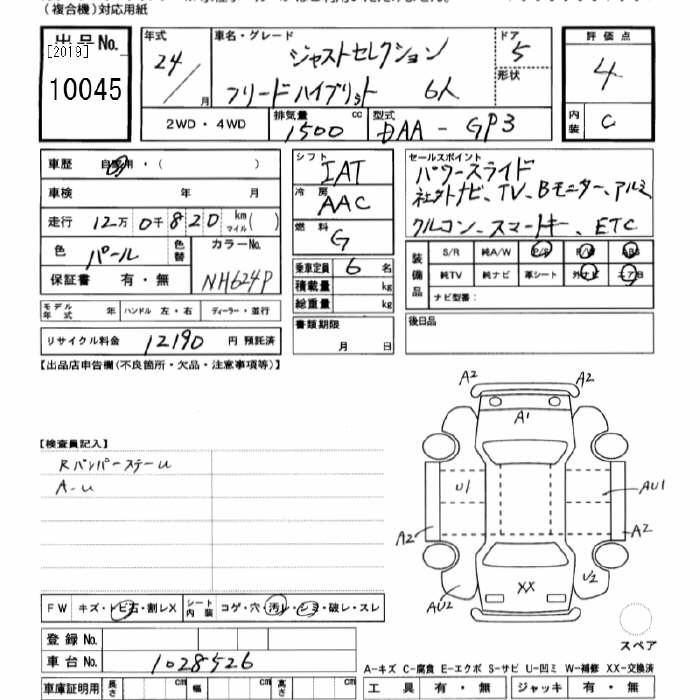 （複合機）対応用紙
出品No.
[2019]
10045
年式
24/
月
車名・グレード
ジャストセレクション
フリードハイブリット 6人
ドア
5
形状
評価点
4
内装
C
2WD・4WD
排気量
1500
cc
型式
DAA-GP3
車歴 自家用・( )
車検 年 月
走行 12万 0千 820 km マイル( )
色 パール
色替
カラーNo.
NH624P
保証書 有・無
モデル年式 年 ハンドル 左・右 ディーラー・並行
リサイクル料金 12190 円 預託済
シフト
IAT
冷房
AAC
燃料
G
乗車定員 6 名
積載量 kg
総重量 kg
書類期限
月 日
セールスポイント
パワースライド
社外ナビ、TV、Bモニター、アルミ
クルコン、スマートキー、ETC
装備品
S/R 純A/W P/S P/W ABS
純TV 純ナビ 革シート 外ナビ エアB
ナビ型番：
後日品
【出品店申告欄(不良箇所・欠品・注意事項等)】
【検査員記入】
RバンパーステーU
A-U
A2 A2
A1
U1
AU1
A2
A2
XX
AU2
U2
スペア
FW キズ・トビ石・割レX
シート内装 コゲ・穴・汚レ・シミ・破レ・スレ
登録No.
車台No. 1028526
車庫証明用 長さ cm 幅 cm 高さ cm
A-キズ C-腐食 E-エクボ S-サビ U-凹ミ W-補修 XX-交換済
工具 有・無 ジャッキ 有・無